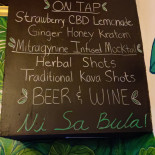 ON TAP
Strawberry CBD Lemonade
Ginger Honey Kratom
Mitragynine Infused Mocktail
Herbal Shots
Traditional Kava Shots
BEER & WINE
Ni Sa Bula!